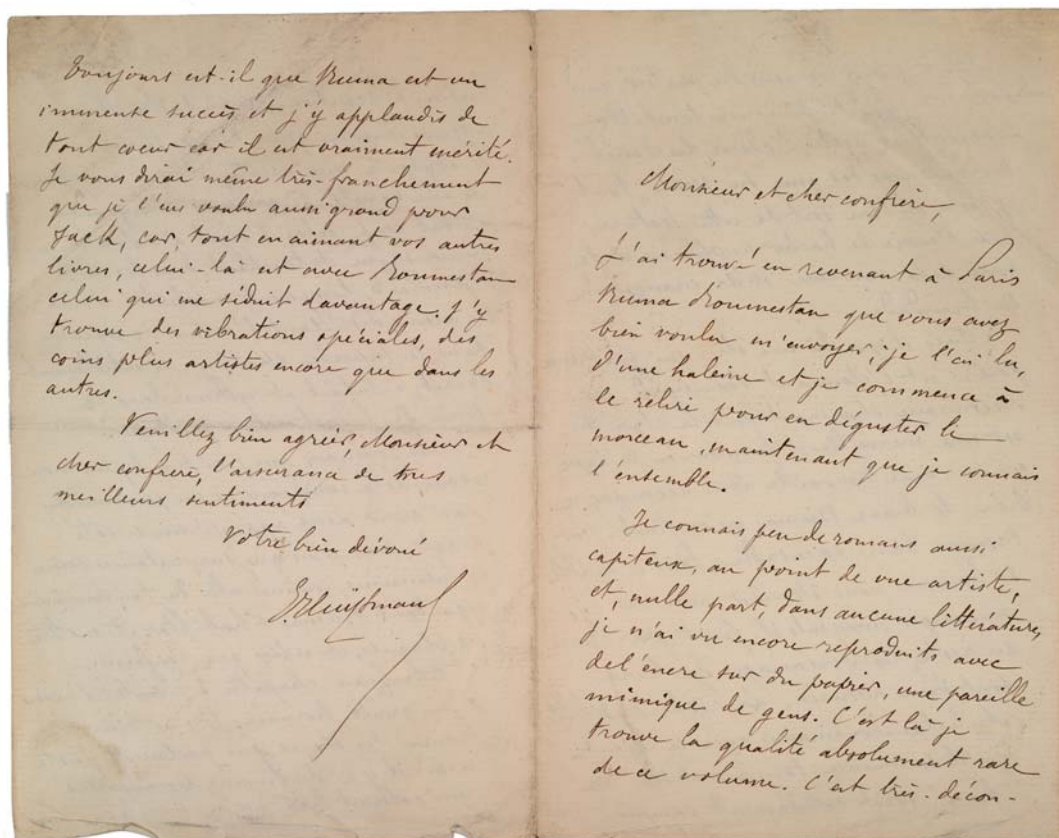 Toujours est-il que Numa est un
immense succès et j'y applaudis de
tout coeur car il est vraiment mérité.
Je vous dirai même très-franchement
que je l'eus voulu aussi grand pour
Jack, car, tout en aimant vos autres
livres, celui-là est avec Roumestan
celui qui me séduit davantage. J'y
trouve des vibrations spéciales, des
coins plus artistes encore que dans les
autres.
Veuillez bien agréer, Monsieur et
cher confrère, l'assurance de mes
meilleurs sentiments
Votre bien dévoué
JKHuysmans
Monsieur et cher confrère,
J'ai trouvé en revenant à Paris
Numa Roumestan que vous avez
bien voulu m'envoyer; je l'ai lu,
d'une haleine et je commence à
le relire pour en déguster le
morceau, maintenant que je connais
l'ensemble.
Je connais peu de romans aussi
capiteux, au point de vue artiste,
et, nulle part, dans aucune littérature,
je n'ai vu encore reproduits avec
de l'encre sur du papier, une pareille
mimique de gens. C'est là je
trouve la qualité absolument rare
de ce volume. C'est très-décon-